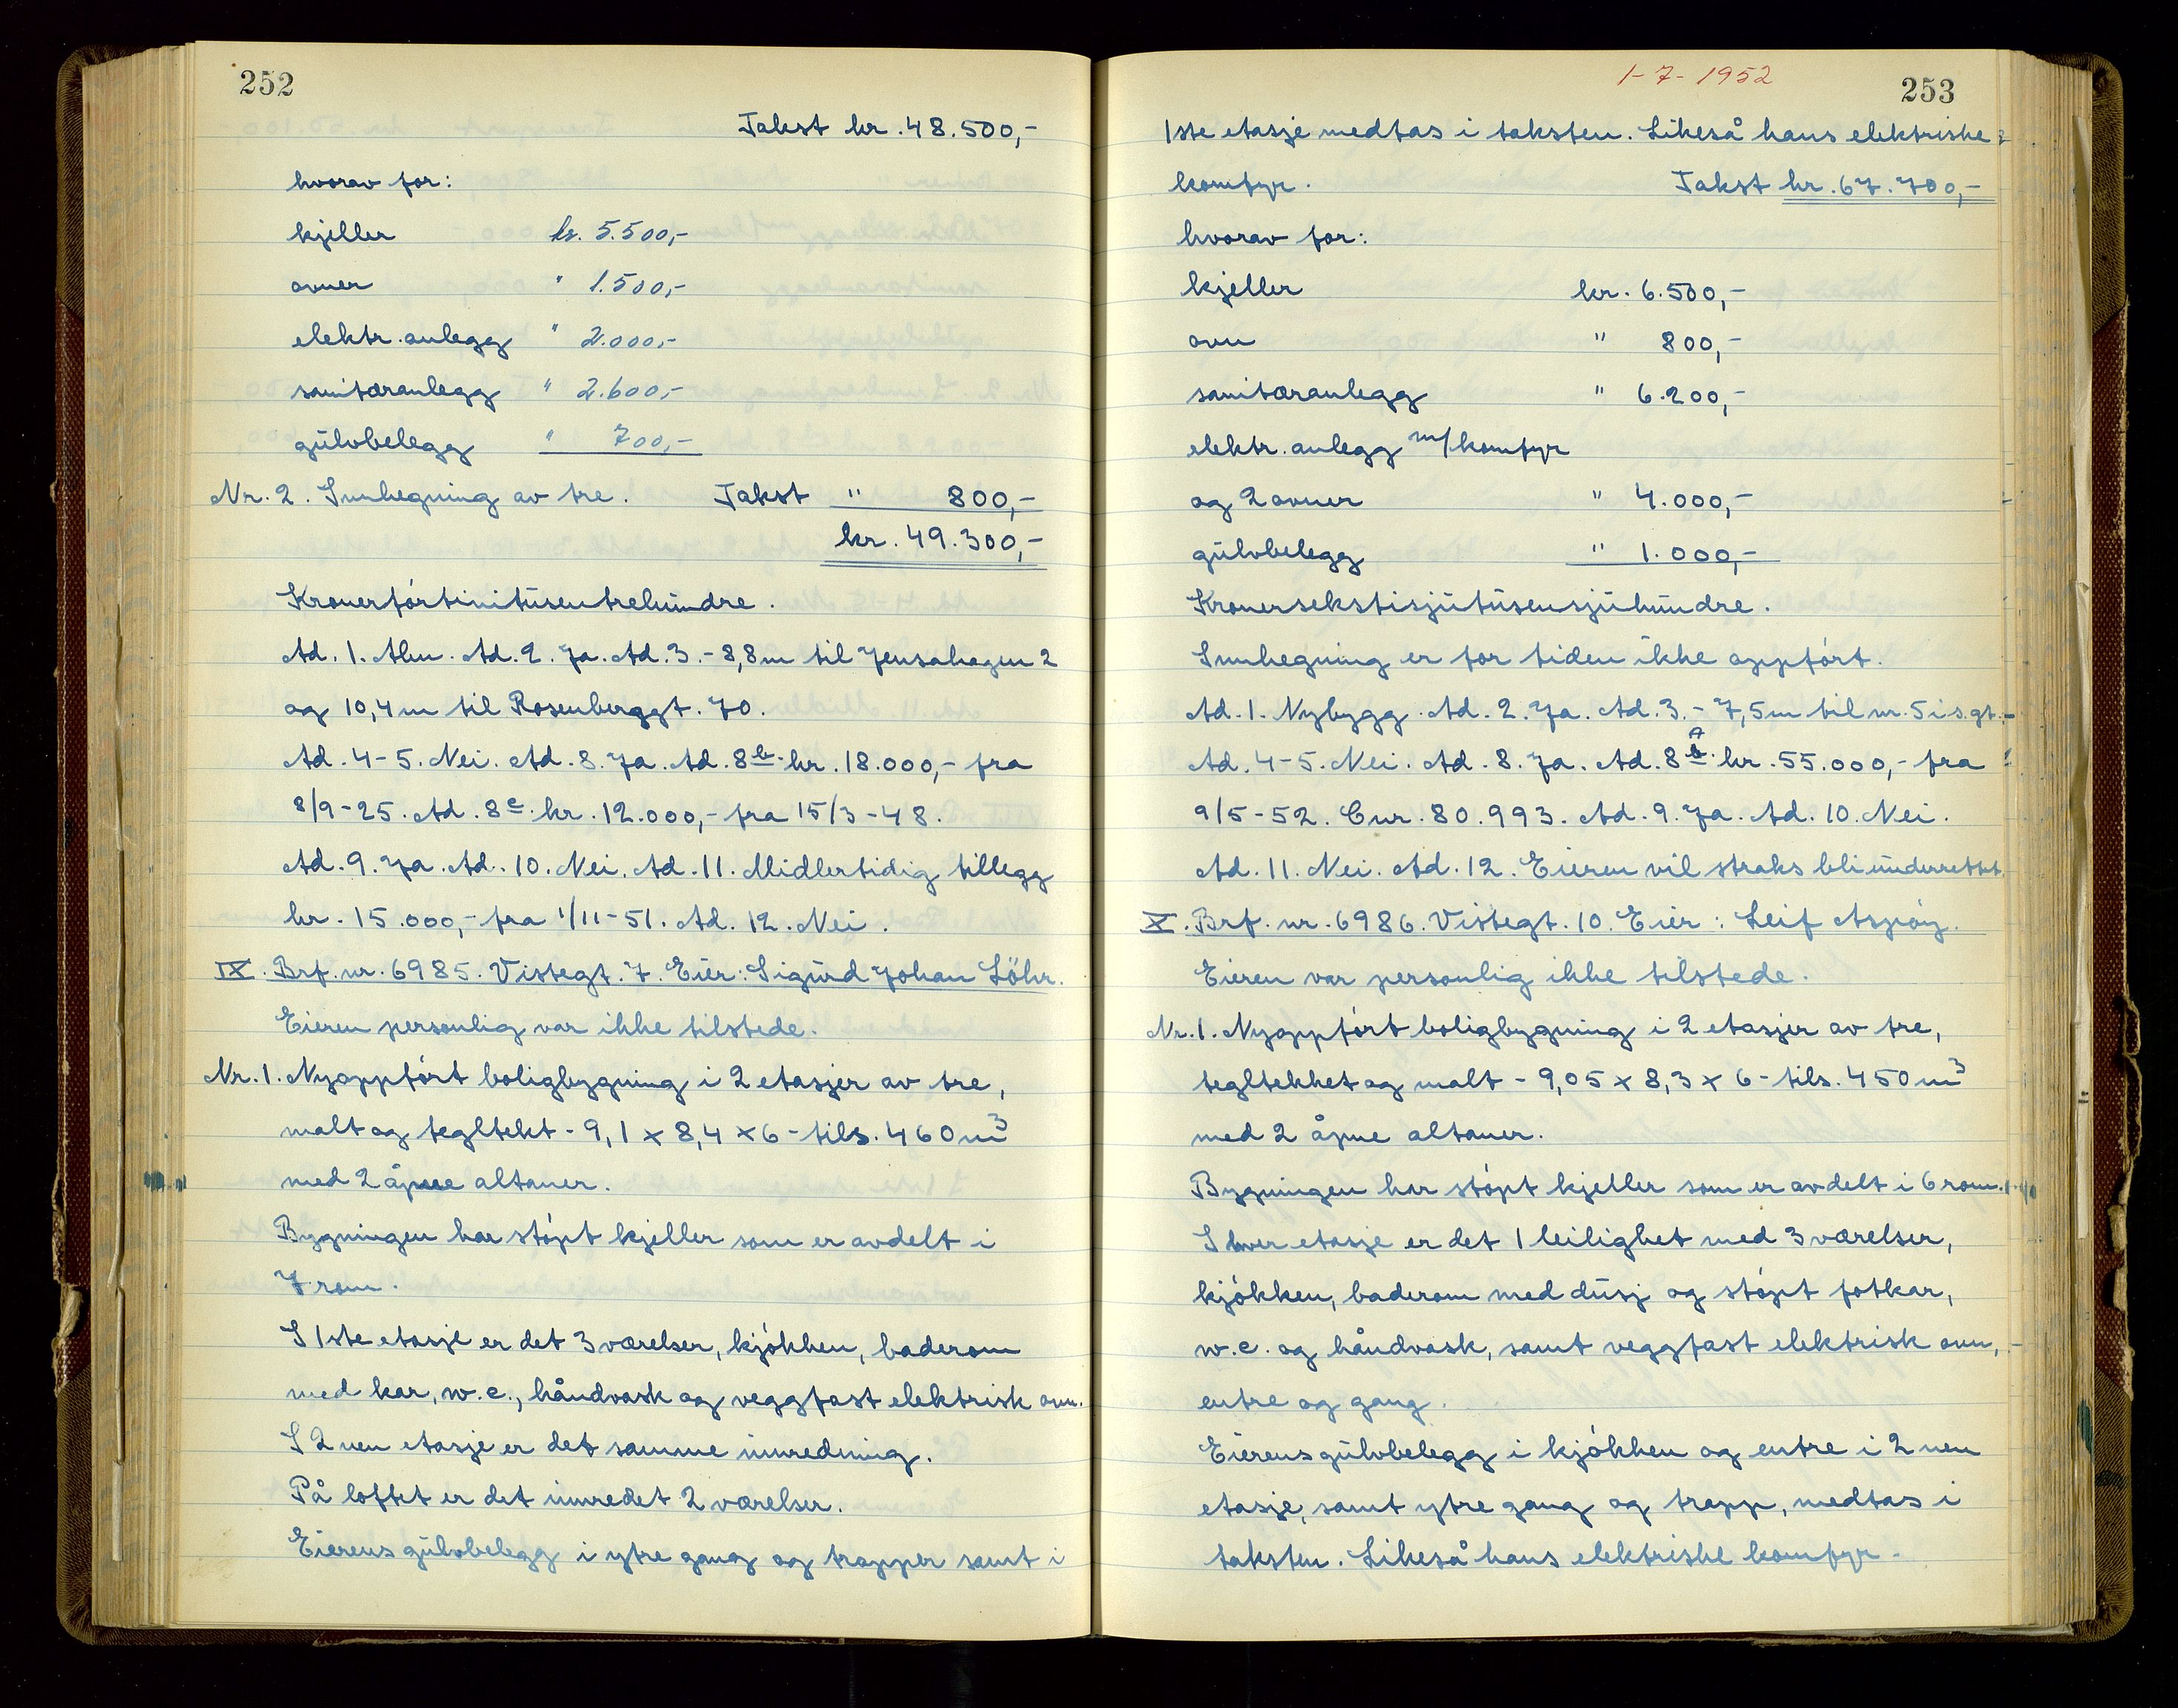 252
Takst kr. 48.500,-
hvorav for:
kjeller kr. 5.500,-
ovner " 1.500,-
elektr. anlegg " 2.000,-
sanitæranlegg " 2.600,-
gulvbelegg " 700,-
Nr. 2. Innhegning av tre. Takst " 800,-
kr. 49.300,-
Kronerførtinitusentrehundre.
Ad. 1. Alm. Ad. 2. Ja. Ad. 3. - 8,8 m til Jensahagen 2
og 10,4 m til Rosenberggt. 70.
Ad. 4-5. Nei. Ad. 8. Ja. Ad. 8b. kr. 18.000,- fra
8/9-25. Ad. 8c. kr. 12.000,- fra 15/3-48.
Ad. 9. Ja. Ad. 10. Nei. Ad. 11. Midlertidig tillegg
kr. 15.000,- fra 1/11-51. Ad. 12. Nei.
IX. Brf. nr. 6985. Vistegt. 7. Eier: Sigurd Johan Löhr.
Eieren personlig var ikke tilstede.
Nr. 1. Nyoppført boligbygning i 2 etasjer av tre,
malt og tegltekt - 9,1 x 8,4 x 6 - tils. 460 m³
med 2 åpne altaner.
Bygningen har støpt kjeller som er avdelt i
7 rom.
I 1ste etasje er det 3 værelser, kjøkken, baderom
med kar, w.c., håndvask og veggfast elektrisk ovn.
I 2nen etasje er det samme innredning.
På loftet er det innredet 2 værelser.
Eierens gulvbelegg i ytre gang og trapper samt i
1-7-1952
253
1ste etasje medtas i taksten. Likeså hans elektriske
komfyr. Takst kr. 67.700,-
hvorav for:
kjeller kr. 6.500,-
ovn " 800,-
sanitæranlegg " 6.200,-
elektr. anlegg m/komfyr
og 2 ovner " 4.000,-
gulvbelegg " 1.000,-
Kronersekstisjutusensjuhundre.
Innhegning er for tiden ikke oppført.
Ad. 1. Nybygg. Ad. 2. Ja. Ad. 3. - 7,5 m til nr. 5 i s. gt. -
Ad. 4-5. Nei. Ad. 8. Ja. Ad. 8a. kr. 55.000,- fra
9/5-52. Cnr. 80.993. Ad. 9. Ja. Ad. 10. Nei.
Ad. 11. Nei. Ad. 12. Eieren vil straks bli underrettet.
X. Brf. nr. 6986. Vistegt. 10. Eier: Leif Aspøy.
Eieren var personlig ikke tilstede.
Nr. 1. Nyoppført boligbygning i 2 etasjer av tre,
tegltekket og malt - 9,05 x 8,3 x 6 - tils. 450 m³
med 2 åpne altaner.
Bygningen har støpt kjeller som er avdelt i 6 rom.
I hver etasje er det 1 leilighet med 3 værelser,
kjøkken, baderom med dusj og støpt fotkar,
w.c. og håndvask, samt veggfast elektrisk ovn,
entre og gang.
Eierens gulvbelegg i kjøkken og entre i 2nen
etasje, samt ytre gang og trapp, medtas i
taksten. Likeså hans elektriske komfyr.